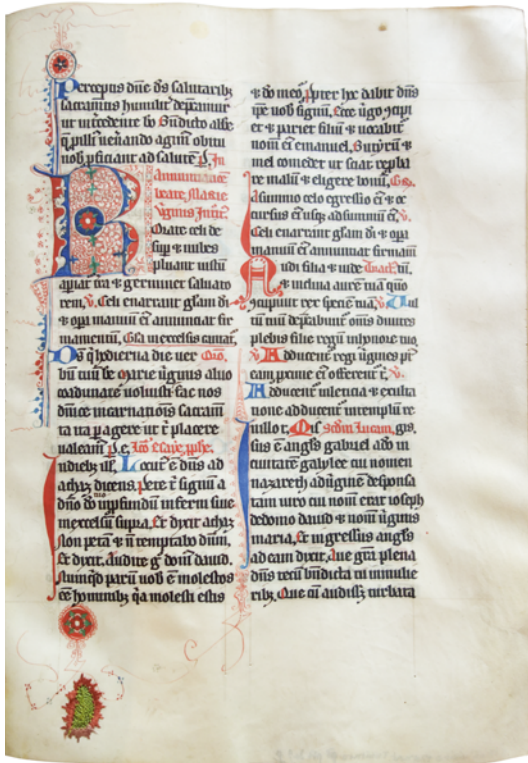 Perceptis dñe ds̄ salutaribꝫ
sacramētis humilit̄ dep̄camur
ut īt̄cedente bō Bñdicto abb̄e
nob̄ pficiant ad salutē p̄. In
annunciacōe
beate Marie
v̄ginis Int̄t
Rorate celi de
sup̄ ⁊ nubes
pluant iustū
apiat̄ t̄ra ⁊ germinet saluato
rem, v̄. Celi enarrant gl̄am di
⁊ opa manuū eī annunciat fir
mamentū, Gl̄a in excelsis
Ds q̇ hodierna die uer Oro,
bū tuū be marie v̄ginis aluo
coadunare uoluisti fac nos
dñice incarnatiōis sacram̄
ta ita pagere ut t̄ placere
ualeam̄ p̄. c. Lc̄o esaye pphe.
In diebꝫ ill̄, Locut̄ ē dñs ad
achaz dicens, pete t̄ signū a
dño dō tuo ī pfundū inferni siue
in excelsū supra, Et dixit achaz
Non petā ⁊ n̄ temptabo dñm,
Et dixit, Audite g̊ dom̄ dauid,
Nunqid parū uob̄ ē molestos
eē hominibꝫ q̄a molesti estis
⁊ dō meo, ppter hc̄ dabit dñs
ip̄e uob̄ signū, Ecce v̄go ɔcipi
et ⁊ pariet filiū ⁊ uocabit̄
nom̄ eī emanuel, Butyrū ⁊
mel comedet ut sciat repba
re malū ⁊ eligere bonū, Gr̄.
A summo celo egressio eī ⁊ oc
cursus eī usqꝫ ad summū eī, v̄.
Celi enarrant gl̄am di ⁊ opa
manuū eī annunciat firmam̄
Audi filia ⁊ uide Tract̄
⁊ inclina aurē tuā quo
ɔcupiuit rex speciē tuā, v̄. Uul
tū tuū dep̄cabunt̄ om̄s diuites
plebis filie regū in honore tuo,
v̄. Adducent̄ regi v̄gines p̄
eam, proxime eī offerent̄ t̄, v̄.
Adducent̄ in leticia ⁊ exulta
tione adducent̄ in templū re
Scd̄m Lucam,
sus ē angl̄s gabriel a dō in
ciuitatē galylee cui nomen
nazareth ad v̄ginē desponsa
tam uiro cui nom̄ erat ioseph
de domo dauid ⁊ nom̄ v̄ginis
maria, Et ingressus angl̄s
ad eam dixit, Aue gr̄a plena
dñs tecū bn̄dicta tu in mulie
ribꝫ, Que cū audissꝫ turbata